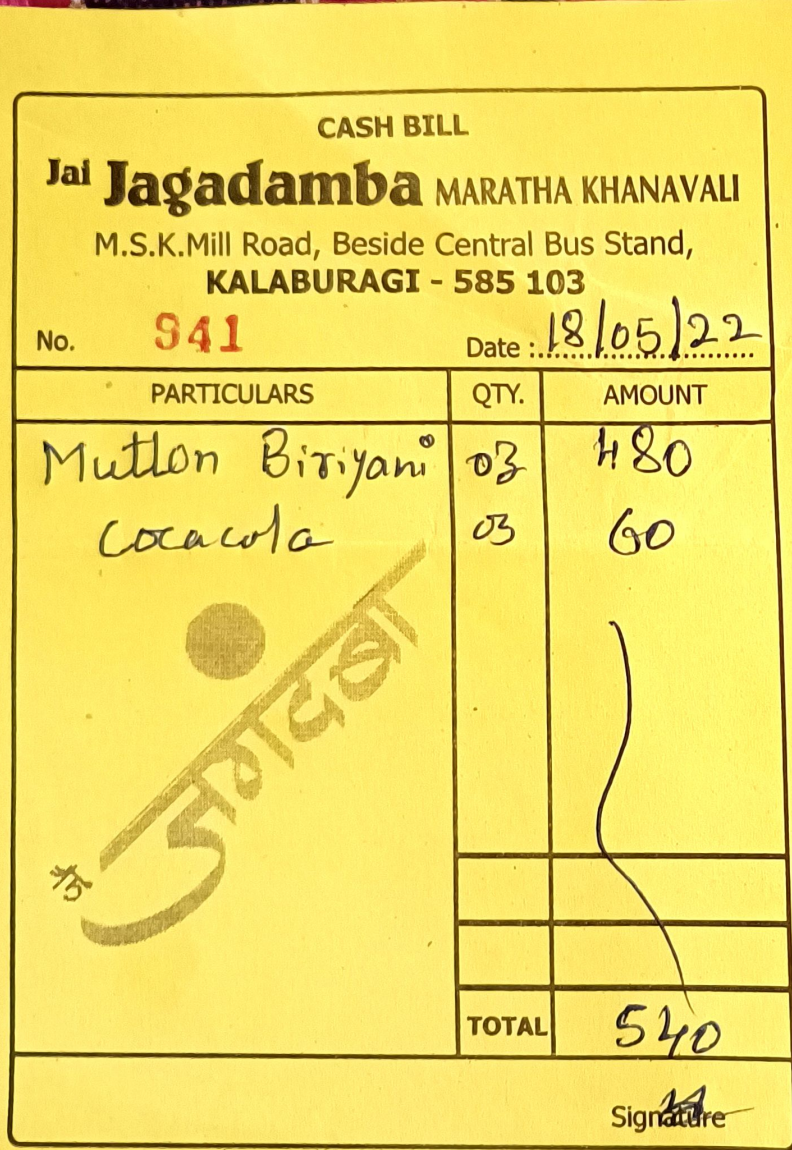 CASH BILL
Jai Jagadamba MARATHA KHANAVALI
M.S.K.Mill Road, Beside Central Bus Stand,
KALABURAGI - 585 103
No. 941 Date : 18/05/22
PARTICULARS QTY. AMOUNT
Mutton Biriyani 03 480
Cocacola 03 60
जै जगदंबा
TOTAL 540
Signature